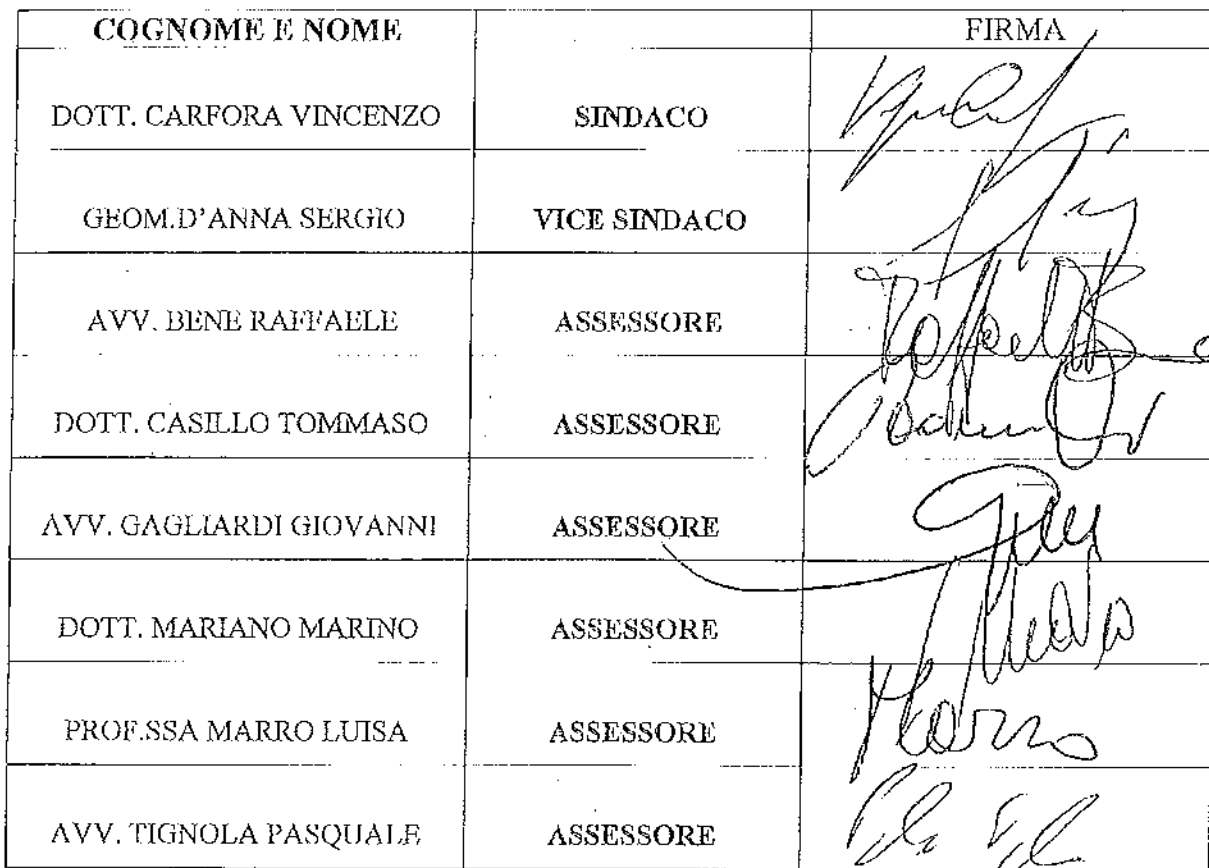 COGNOME E NOME FIRMA
DOTT. CARFORA VINCENZO SINDACO
GEOM.D'ANNA SERGIO VICE SINDACO
AVV. BENE RAFFAELE ASSESSORE
DOTT. CASILLO TOMMASO ASSESSORE
AVV. GAGLIARDI GIOVANNI ASSESSORE
DOTT. MARIANO MARINO ASSESSORE
PROF.SSA MARRO LUISA ASSESSORE Marro
AVV. TIGNOLA PASQUALE ASSESSORE